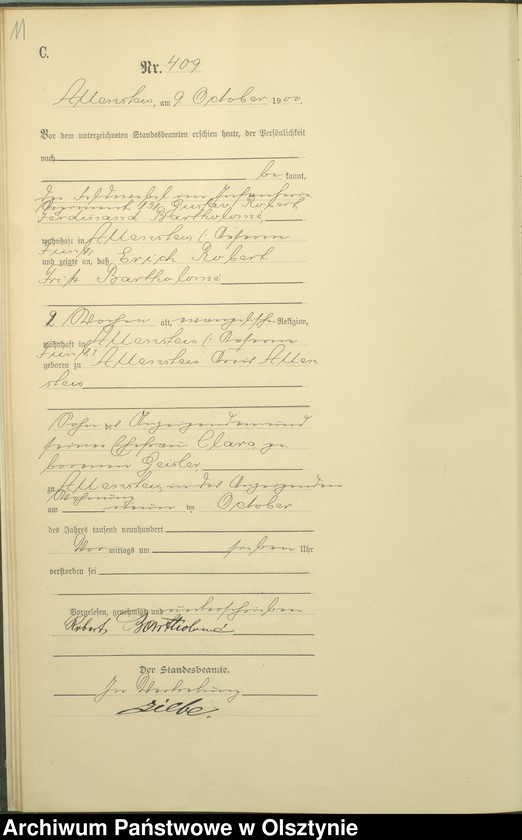 11
C.
Nr. 409
Allenstein, am 9 October 1900.
Vor dem unterzeichneten Standesbeamten erschien heute, der Persönlichkeit
nach
be kannt,
der Feldwebel im Infanterie
Regiment Gustav Robert
Ferdinand Bartholomé,
wohnhaft in Allenstein
und zeigte an, daß Erich Robert
Fritz Bartholomé
2 Wochen alt, evangelischer Religion,
wohnhaft in Allenstein
geboren zu Allenstein Kreis Allen
stein
Sohn des Anzeigenden und
seiner Ehefrau Clara, ge
borenen Geisler,
zu Allenstein, in des Anzeigenden
Wohnung
am neun ten October
des Jahres tausend neunhundert
Vor mittags um sieben Uhr
verstorben sei
Vorgelesen, genehmigt und unterschrieben
Robert Bartholomé
Der Standesbeamte.
In Vertretung
Ziebe.
Archiwum Państwowe w Olsztynie